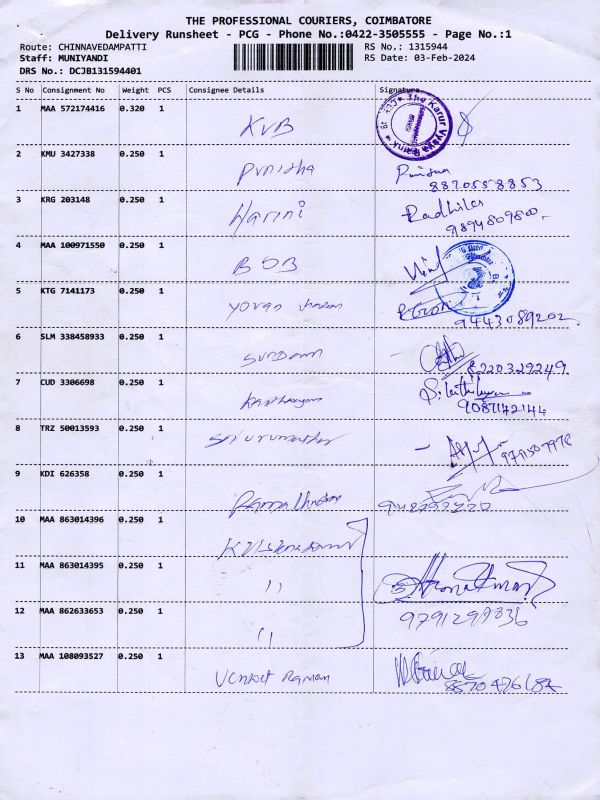 THE PROFESSIONAL COURIERS, COIMBATORE
Delivery Runsheet - PCG - Phone No.:0422-3505555 - Page No.:1
Route: CHINNAVEDAMPATTI RS No.: 1315944
Staff: MUNIYANDI RS Date: 03-Feb-2024
DRS No.: DCJB131594401
S No Consignment No Weight PCS Consignee Details Signature
1 MAA 572174416 0.320 1 KVB The Karur Vysya Bank
2 KMU 3427338 0.250 1 Punitha
8820558853
3 KRG 203148 0.250 1 Harini Radhika
9894809800
4 MAA 100971550 0.250 1 BOB
5 KTG 7141173 0.250 1
9443089202
6 SLM 338458933 0.250 1 8220329249
7 CUD 3306698 0.250 1
9087142144
8 TRZ 50013593 0.250 1
9 KDI 626358 0.250 1
10 MAA 863014396 0.250 1
11 MAA 863014395 0.250 1 ''
12 MAA 862633653 0.250 1 '' 9791299836
13 MAA 108093527 0.250 1 Venkat Raman